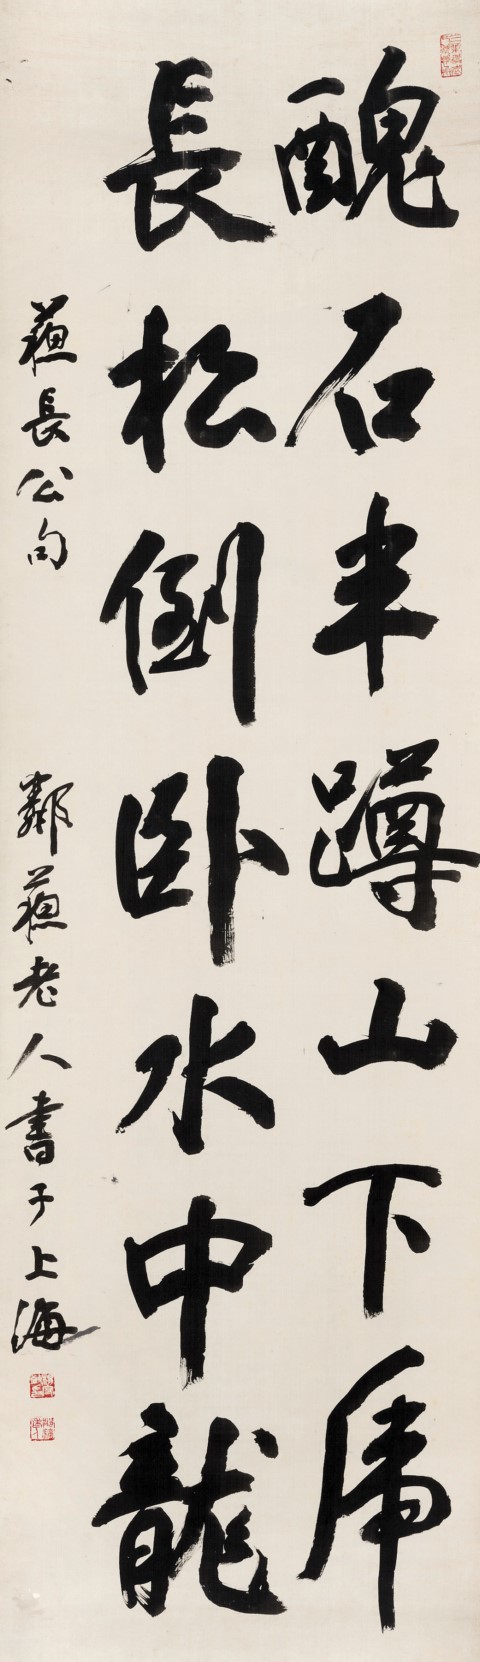 醜石半蹲山下虎
長松倒臥水中龍
蘓長公句
鄰蘓老人書于上海